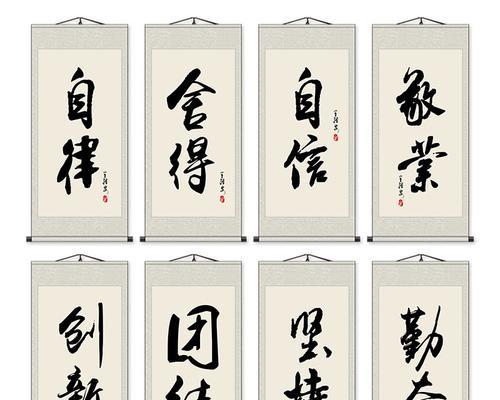 自律
舍得
自信
敬業
创新
团结
坚持
勤奋